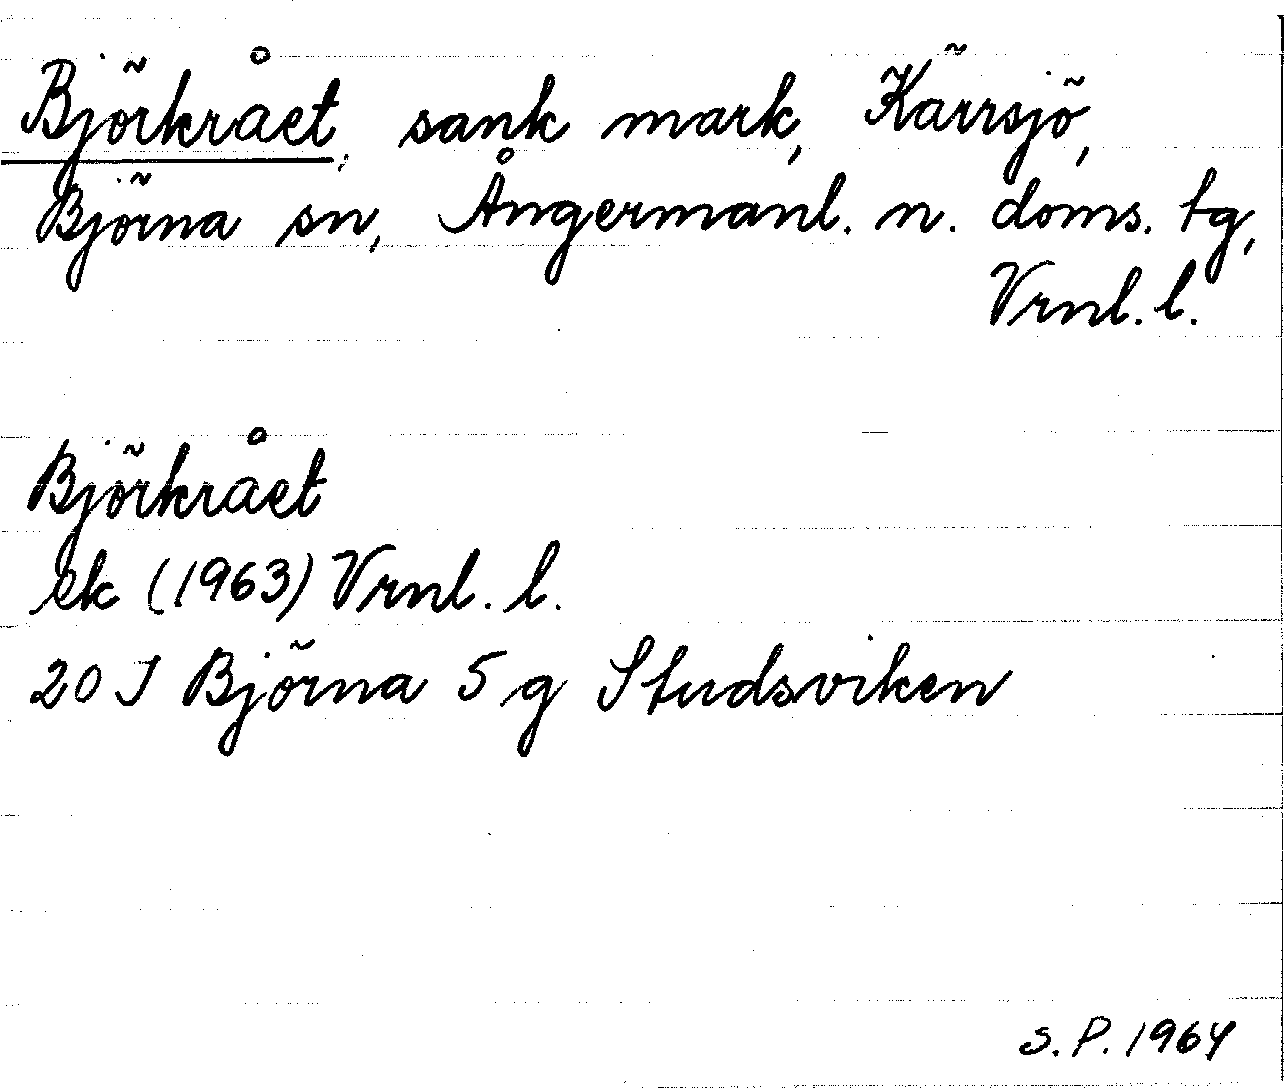 Björkrået, sank mark, Kärrsjö,
Björna sn, Ångermanl. n. doms. tg,
Vrnl. l.
Björkrået
ek (1963) Vrnl. l.
20 J Björna 5 g Studsviken
S. P. 1964